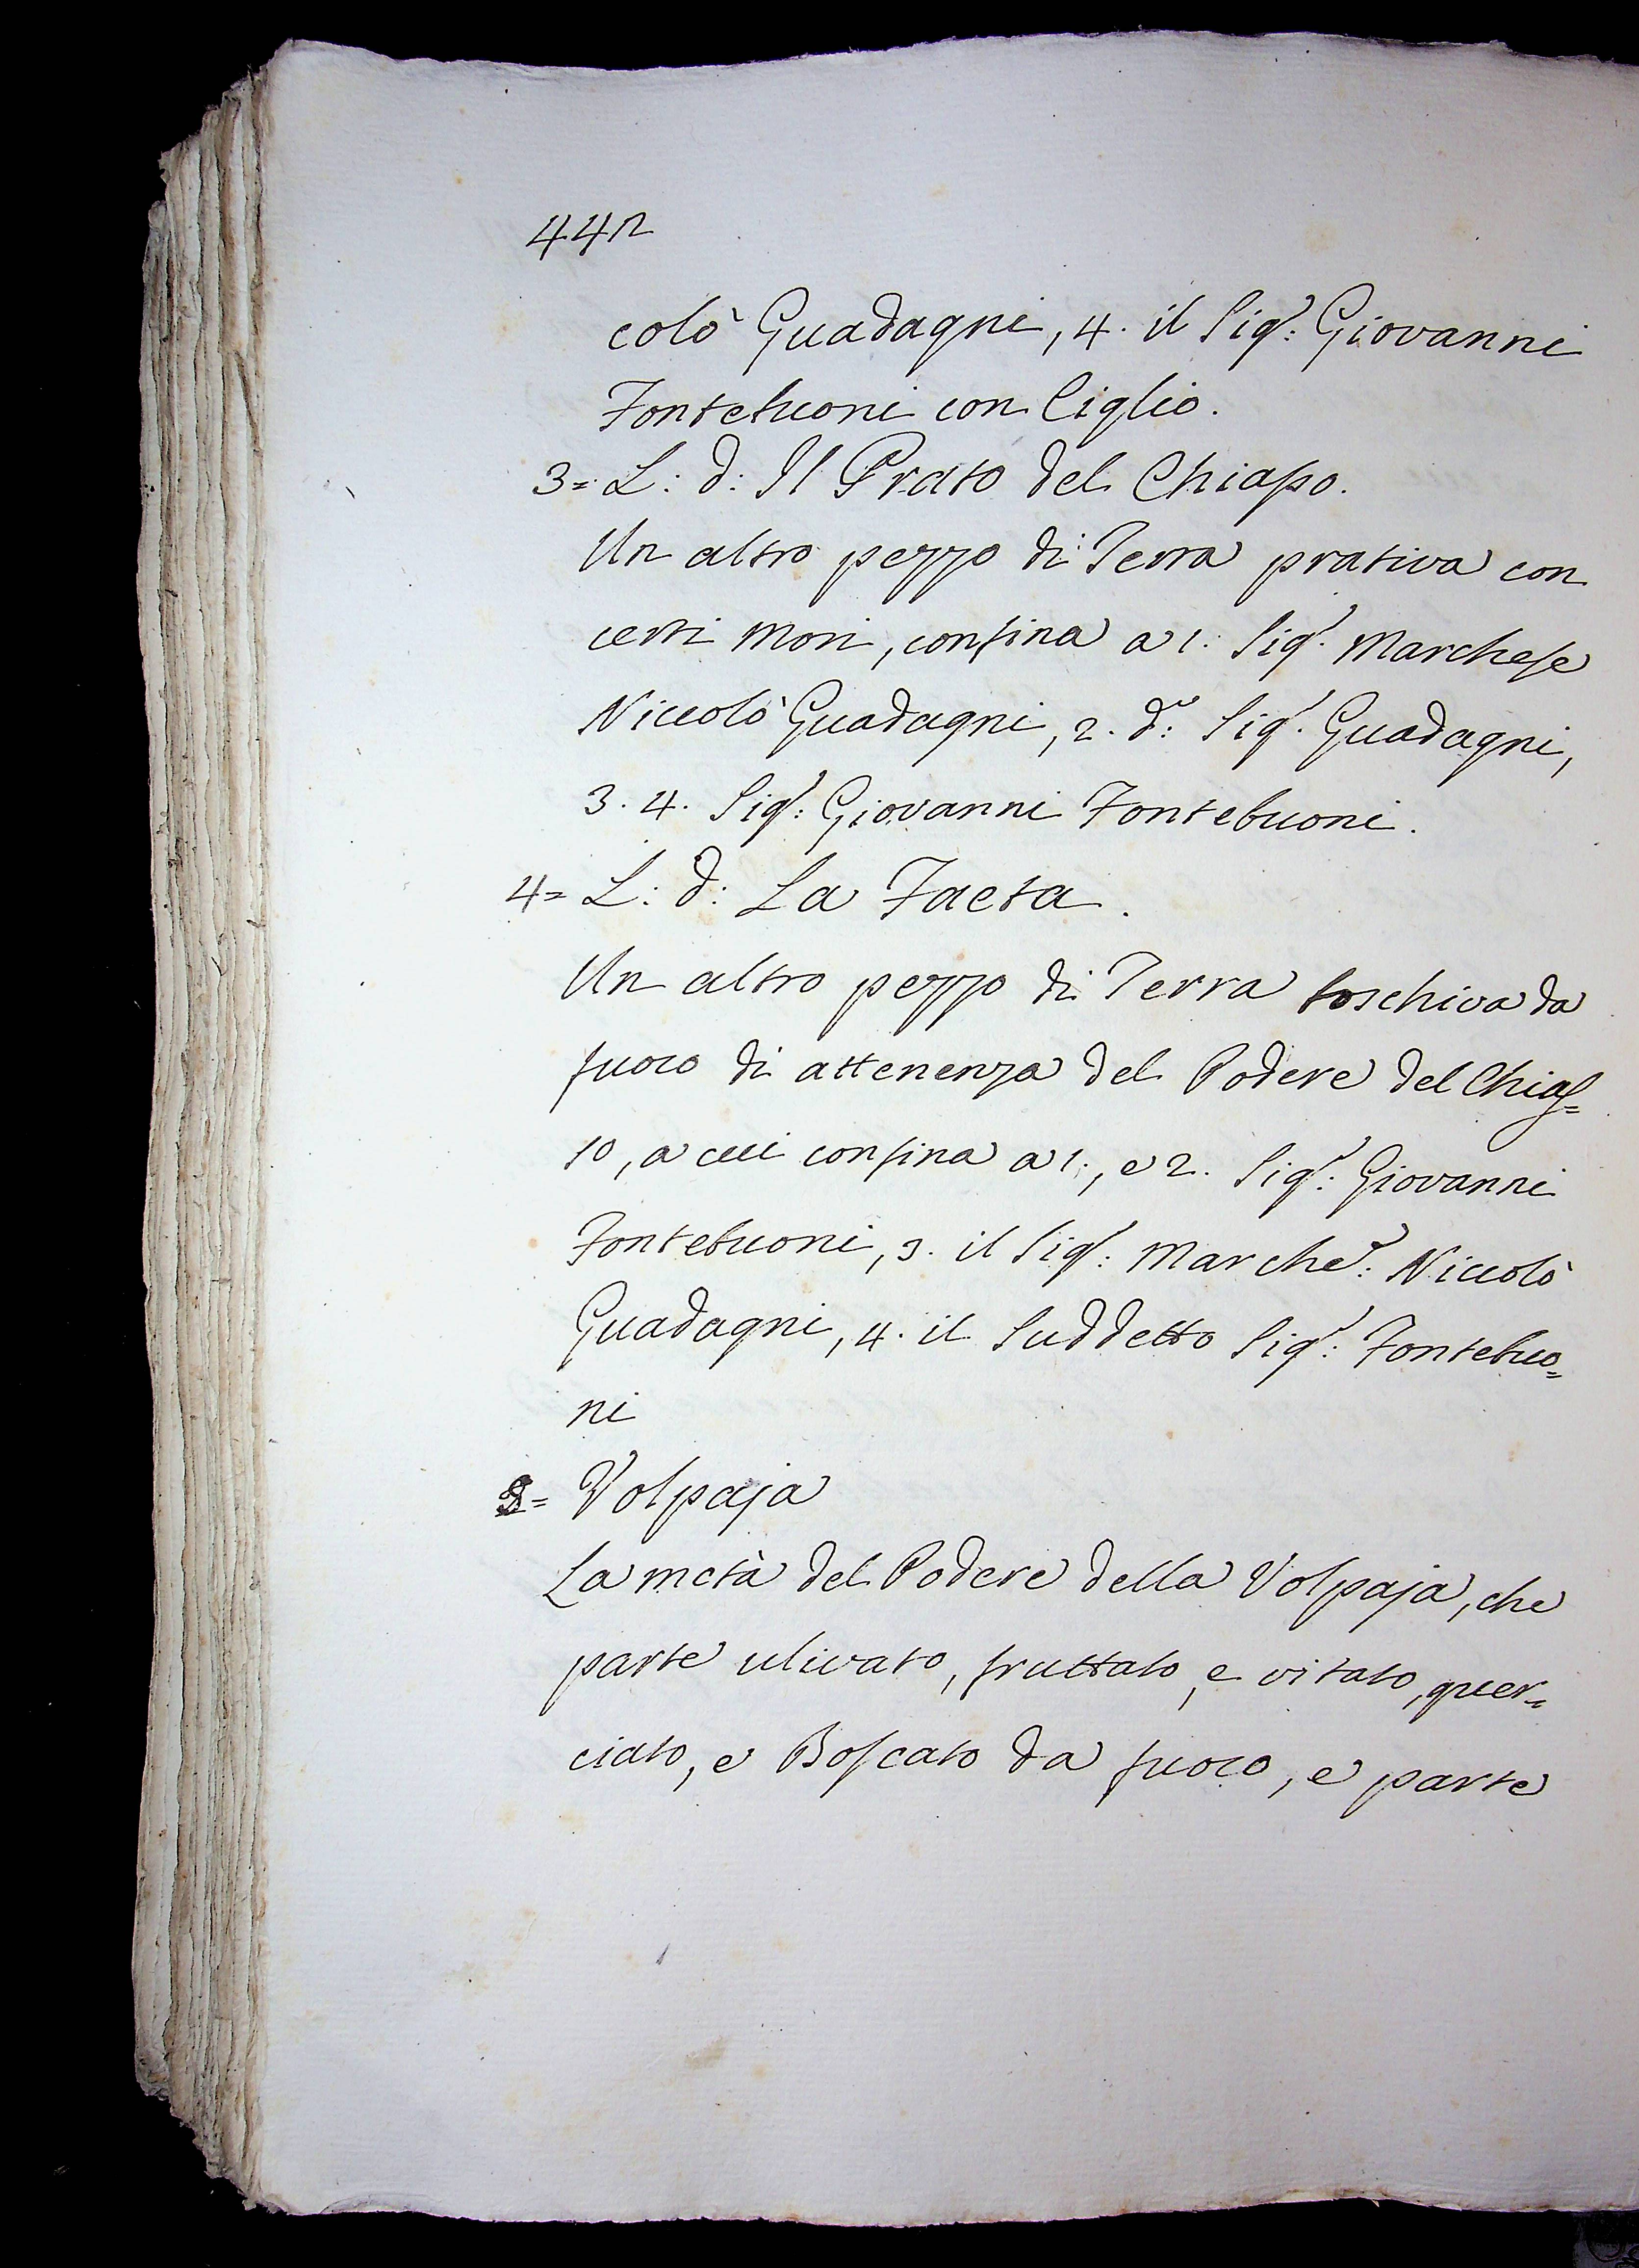 442
colò Guadagni, 4. il Sig.r: Giovanni
Fontebuoni con Ciglio.
3= L: d: Il Prato del Chiasso.
Un altro pezzo di Terra prativa con
certi Mori, confina a 1. Sig.r Marchese
Niccolò Guadagni, 2. d.o: Sig.r Guadagni,
3. 4. Sig.r: Giovanni Fontebuoni.
4= L: d: La Faeta.
Un altro pezzo di Terra boschiva da
fuoco di attenenza del Podere del Chias=
so, a cui confina a 1., e 2. Sig.r: Giovanni
Fontebuoni, 3. il Sig.r: Marche.e: Niccolò
Guadagni, 4. il Suddetto Sig.r: Fontebuo=
ni
= Volpaja
La metà del Podere della Volpaja, che
parte ulivato, fruttato, e vitato, quer=
ciato, e Boscato da fuoco, e parte